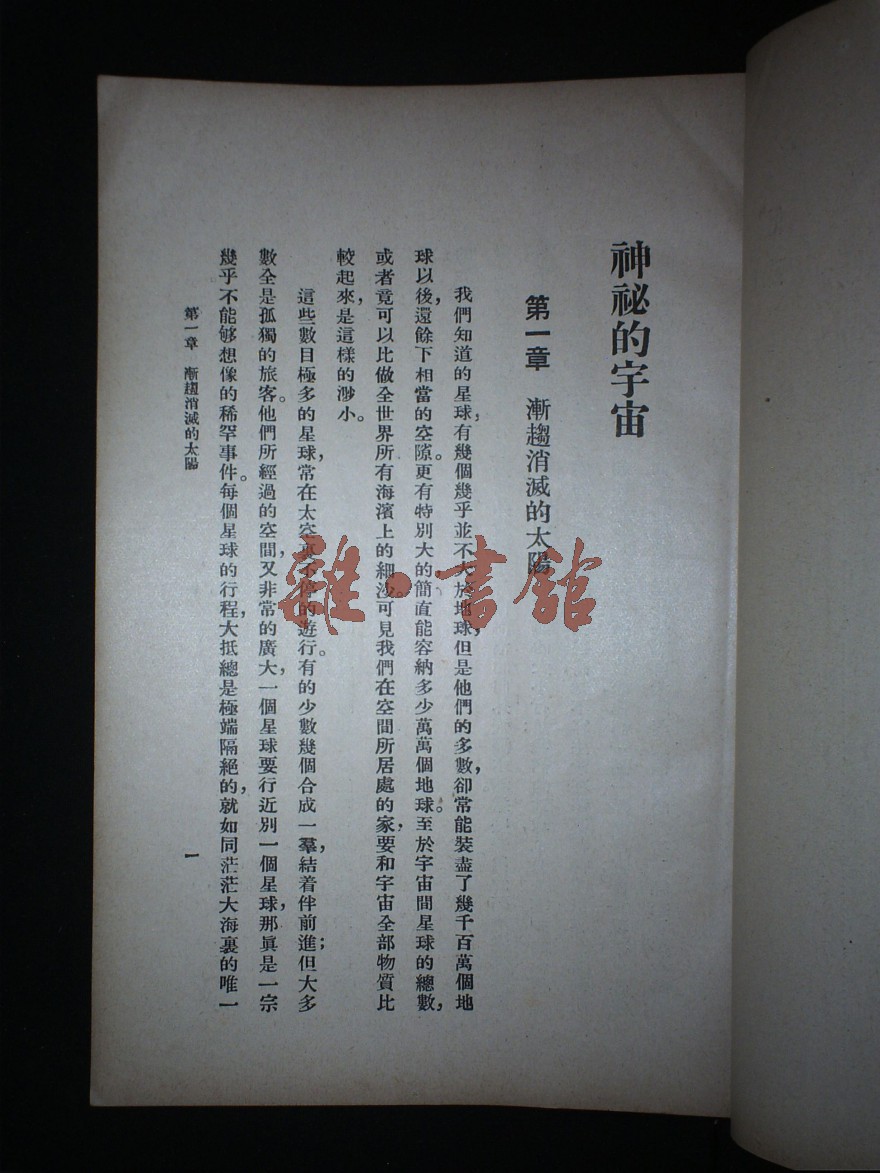 神祕的宇宙
第一章 漸趨消滅的太陽
我們知道的星球,有幾個幾乎並不大於地球,但是他們的多數,卻常能裝盡了幾千百萬個地
球以後,還餘下相當的空隙。更有特別大的簡直能容納多少萬萬個地球。至於宇宙間星球的總數,
或者竟可以比做全世界所有海濱上的細沙。可見我們在空間所居處的家,要和宇宙全部物質比
較起來,是這樣的渺小。
這些數目極多的星球,常在太空裏不停的遊行。有的少數幾個合成一羣,結着伴前進;但大多
數全是孤獨的旅客。他們所經過的空間,又非常的廣大,一個星球要行近別一個星球,那眞是一宗
幾乎不能够想像的稀罕事件。每個星球的行程,大抵總是極端隔絕的,就如同茫茫大海裏的唯一
第一章 漸趨消滅的太陽
一
雜·書館